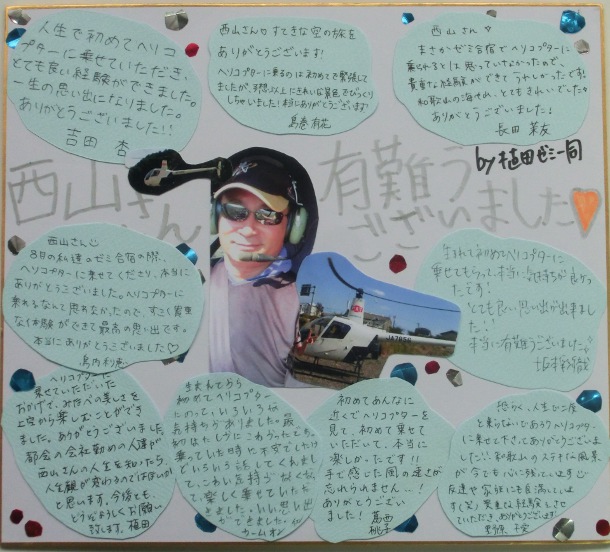 人生で初めてヘリコ
プターに乗せていただき、
とても良い経験ができました。
一生の思い出になりました。
ありがとうございました!!
吉田 杏
西山さん
すてきな空の旅を
ありがとうございます!
ヘリコプターに乗るのは初めてで緊張して
ましたが、予想以上にきれいな景色でびっくり
しちゃいました!本当にありがとうございます!
島巻 有花
西山さん
まさかゼミ合宿でヘリコプターに
乗られるとは思っていなかったので、
貴重な経験ができてうれしかったです!
和歌山の海せん、とてもきれいでした。
ありがとうございました!
長田 茉友
by 植田ゼミ一同
西山さん
有難う
ございました
西山さん
8日の私達のゼミ合宿の際、
ヘリコプターに乗せてくださり、本当に
ありがとうございました。ヘリコプターに
乗れるなんて思わなかったので、すごく貴重
な体験ができて最高の思い出です。
本当にありがとうございました♡
島内 利恵
JA7958
生まれて初めてヘリコプターに
乗せてもらって、本当に気持ちが良かっ
たです!
とても良い思い出が出来まし
た!
本当に有難うございました。
ヘリコプターに
乗せていただいた
おかげで、みなべの美しさを
上空から楽しむことができ
ました。ありがとうございました。
都会の会社勤めの人達が
西山さんの人生を知ったら、
人生観が変わるのではないか
と思います。今後とも
どうぞよろしくお願い
致します。植田
生まれてから
初めてヘリコプター
にのって、いろいろな
気持ちがありました。最
初はなにしろこわかったです。
乗っていた時に不安でしたけ
どいろいろ話してくれまし
て、こわい気持がなくなっ
て楽しく乗せていただき
ました。いい思い出
ができました。
カームオン
初めてあんなに
近くでヘリコプターを
見て、初めて乗せて
いただいて、本当に
楽しかったです!!
手で感じた風の速さが
忘れられません…!
ありがとうござい
ました! 葛西
桃子
恐らく、人生で二度
と乗らないであろうヘリコプター
に乗せて下さってありがとうございま
した!!和歌山のステキに風景
が今でも心に残っています
友達や家族にも自慢していま
す(笑) 貴重な経験をさせ
ていただき、ありがとうございます!
野原 千安